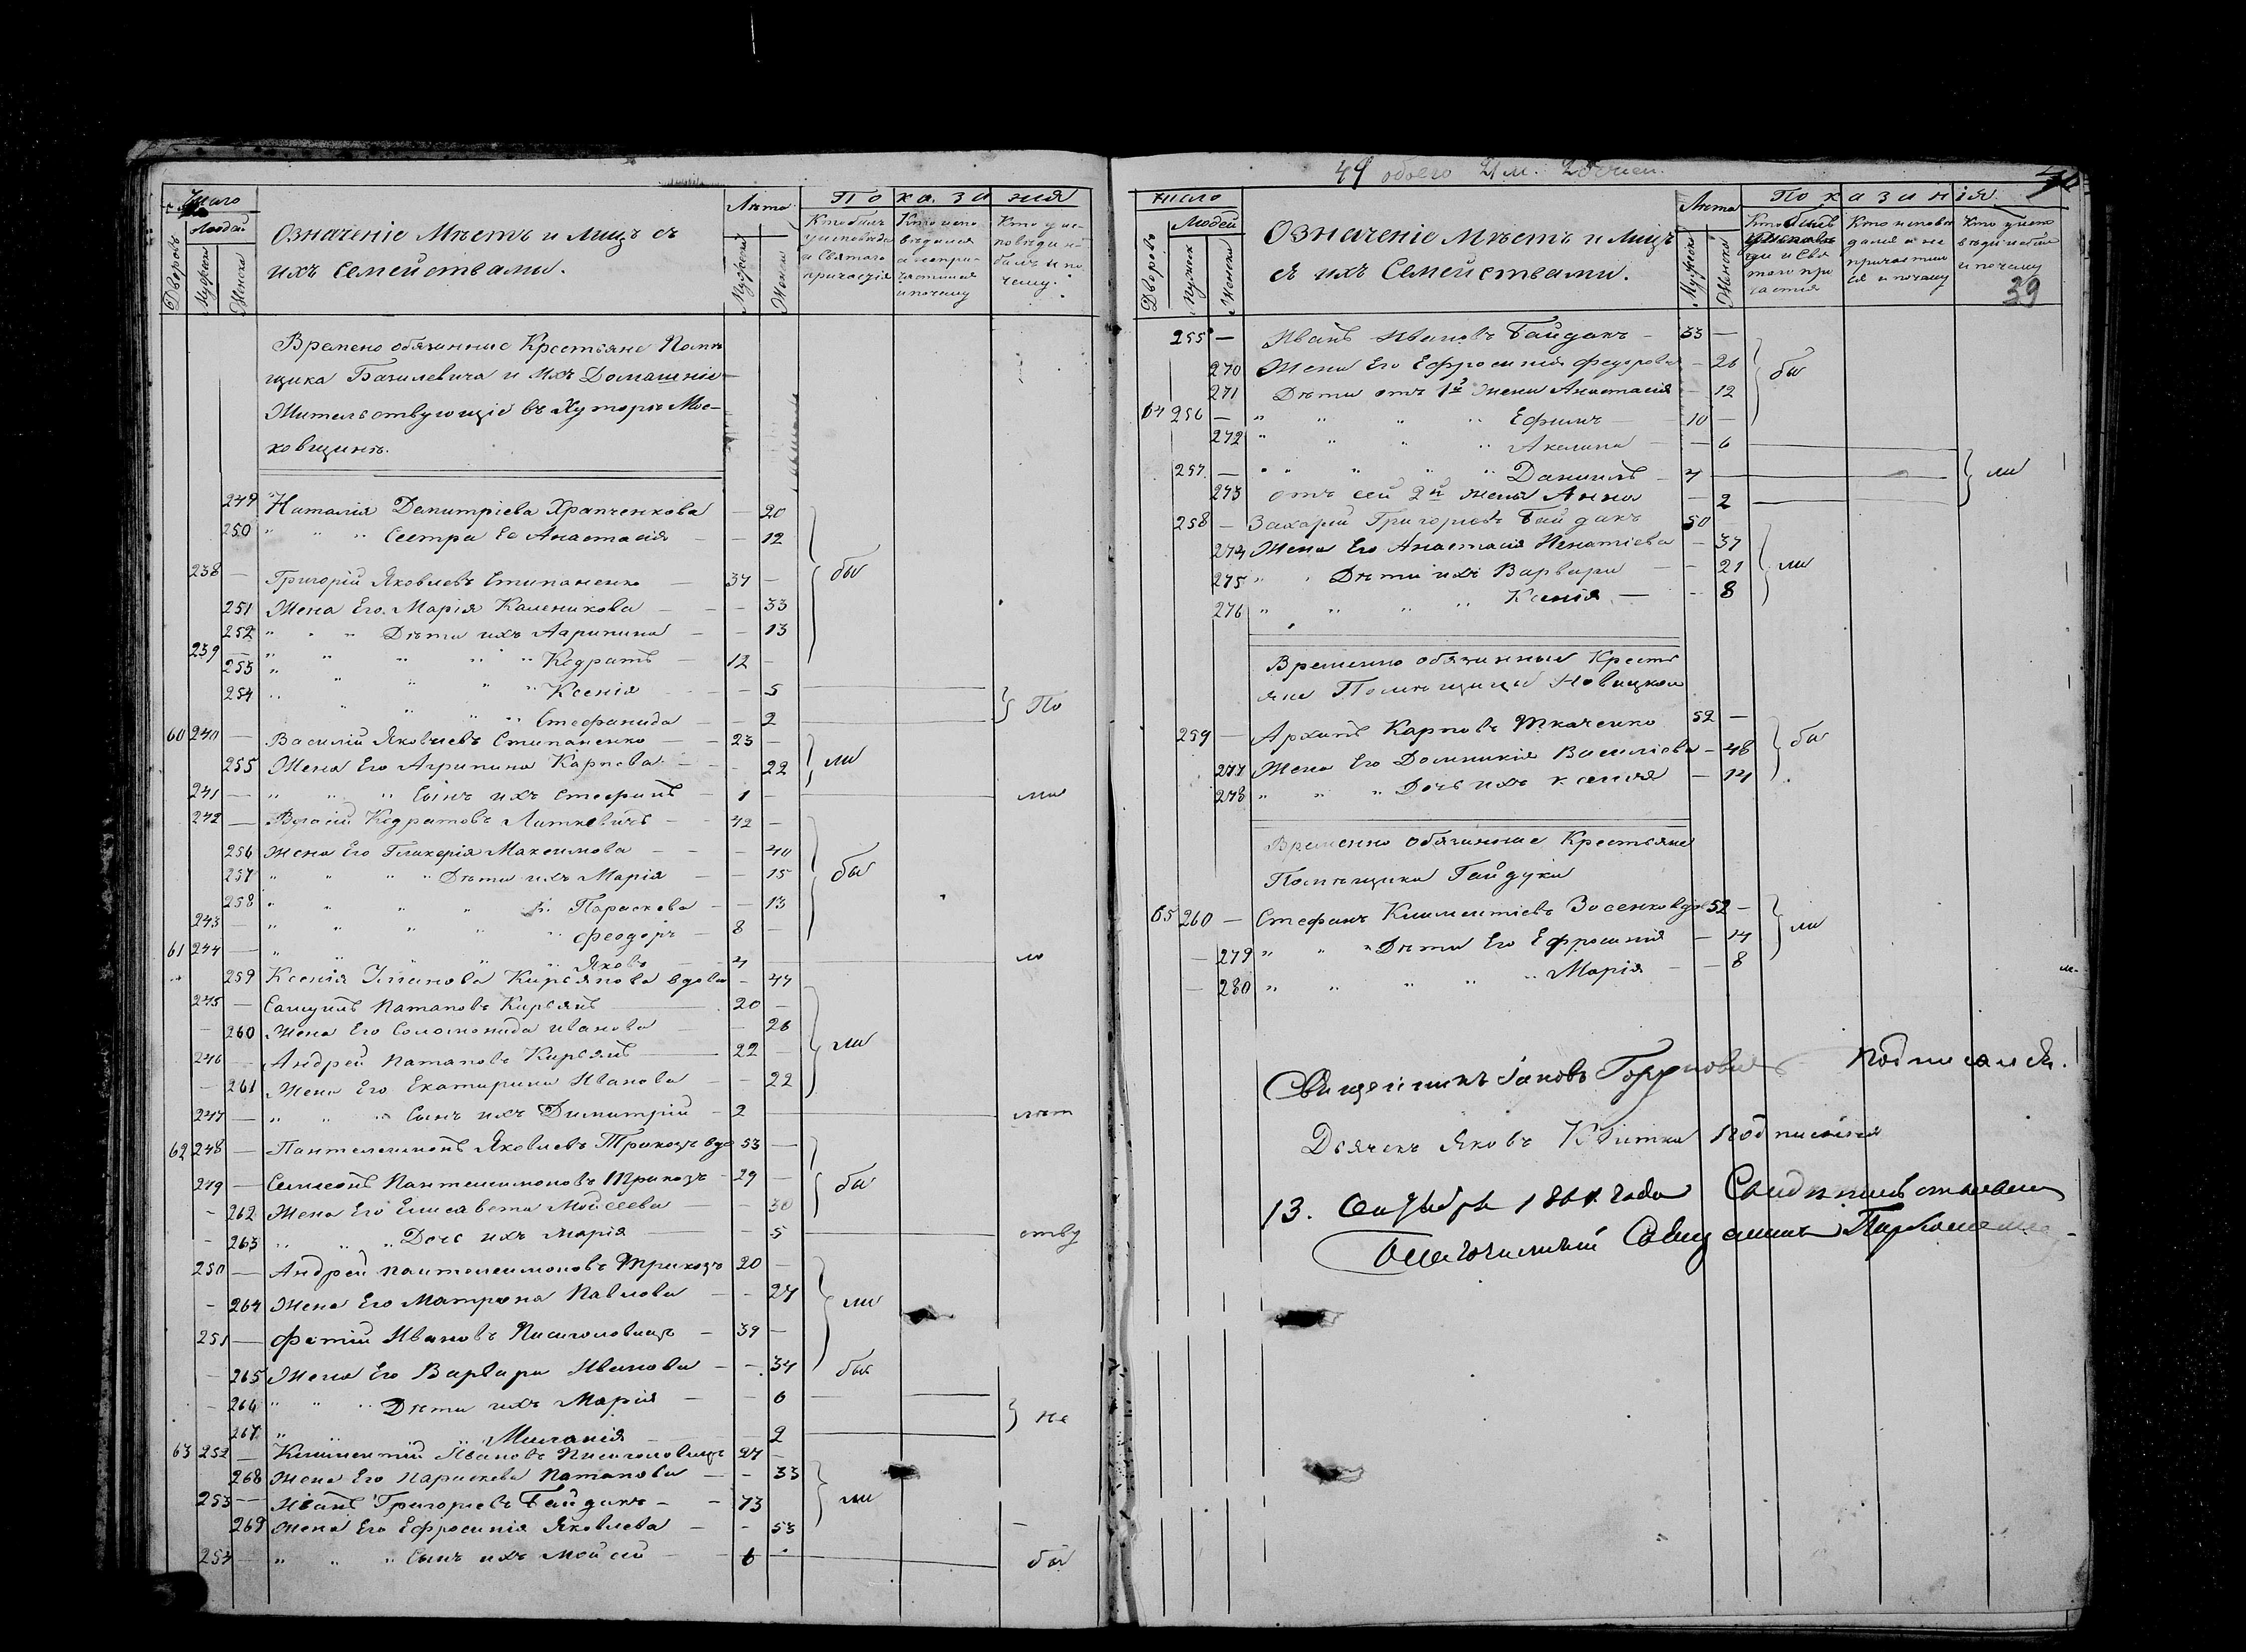 Число
Людей
Дворовъ
Мужеска
Женска
Означеніе Мѣстъ и Лицъ съ
ихъ Семействами.
Лѣта
Мужеск
Женск
По ка за нія
Кто былъ
у исповѣди
и Святаго
причастія
Кто испо
вѣдался
а непри-
частился
и почему
Кто у ис-
повѣди не
былъ и по
чему.
Времено обязанные Крестьяне Помѣ
щика Базилевича и Ихъ Домашніе
Жительствующіе въ Хуторѣ Мос-
ковщинѣ.
249 Наталія Демитріева Храпченкова — 20
250 " " " Сестра Ее Анастасія — — 12
238 — Григорій Яковлевъ Степаненко — 37 — бы
251 Жена Его Марія Каленикова — — 33
252 " " " Дѣти ихъ Агрипина — — 13
239 — " " " " " Кодратъ — 12 —
253 " " " " " Ксенія — 5
254 " " " " " Стефанида — — 2 По
60 240 — Василій Яковлевъ Степаненко — 23 —
255 Жена Его Агрипина Карпова — — 22 ли
241 — " " " Сынъ ихъ Стефанъ — 1 — ми
242 — Власій Кодратовъ Литкевичъ — 42 —
256 Жена Его Гликерія Максимова — — 40
257 " " " " Дѣти ихъ Марія — — 15 бы
258 " " " " " Параскева — — 13
243 — " " " " " Феодоръ — 8 —
61 244 — " " " " Яковъ — 4 ло
259 Ксенія Кирьянова вдова — 47
245 — Самуилъ Патаповъ Кирьянъ 20 —
260 Жена Его Соломонида Иванова — 26
246 — Андрей Патаповъ Кирьянъ — 22 — ли
261 Жена Его Екатирина Иванова — — 22
247 — " " " Сынъ ихъ Димитрій — 2 лѣт
62 248 — Пантелеимонъ Яковлевъ Трикозъ вдо 53 —
249 — Симеонъ Пантелеимоновъ Трикозъ — 29 — бы
262 Жена Его Елисавета Мойсеева — — 30
263 " " " Дочь ихъ Марія — 5 ству
250 — Андрей Пантелеимоновъ Трикозъ 20 —
264 Жена Его Матрона Павлова — — 27 ли
251 — Фотій Ивановъ Писиголовицъ — 39 —
265 Жена Его Варвара Иванова — — 34 бы
266 " " " Дѣти ихъ Марія — — 6 не
267 " " " Миланія — 2
63 252 — Климентій Ивановъ Писиголовицъ 27 —
268 Жена Его Параскева Патапова — — 33
253 — Иванъ Григорьевъ Гайдакъ — — 73 ли
269 Жена Его Ефросинія Яковлева — — 53
254 — " " " Сынъ ихъ Мойсей — 6 бы
49 обоего 21 м. 28 жен.
Число
Людей
Дворовъ
Мужеск
Женска
Означеніе Мѣстъ и Лицъ
съ ихъ Семействами.
Лѣта
Мужеска
Женска
По к а з а н ія
Кто былъ
у исповѣ
ди и Свя
таго при
частія
Кто исповѣ
дался а не
причастил
ся и почему
Кто у испо
вѣди не был
и почему
39
255 — Иванъ Ивановъ Гайдакъ — 33 —
270 Жена Его Ефросинія Федорова — 26 бы
271 Дѣти отъ 1й жены Анастасія — 12
64 256 — " " " " Ефимъ — 10 —
272 " " " " Акелина — — 6
257 — " " " " " Даниилъ — 4 ли
273 отъ сей 2й жены Анна — 2
258 — Захарій Григорьевъ Гайдакъ 50 —
274 Жена Его Анастасія Игнатіева — 37
275 " " Дѣти ихъ Варвара — — 21 ли
276 " " " " Ксенія — — 8
Временно обязанные Кресть
яне Помѣщицы Новицкои
259 — Архипъ Карповъ Ткаченко 52 —
277 Жена Его Домникія Василіева — 48 бы
278 " " " Дочь ихъ Ксенія — 14
Временно обязанные Крестьяне
Помѣщика Гайдука
65 260 — Стефанъ Климентіевъ Зосенко вдо 52 —
279 " " " Дѣти Его Ефросинія — 14 ли
280 " " " " " Марія — — 8
Священникъ Іаковъ подписался.
Дьячекъ Яковъ Квитка подписался
13. Сентября 1861 года Свидѣтельствовалъ
Благочинный Священникъ